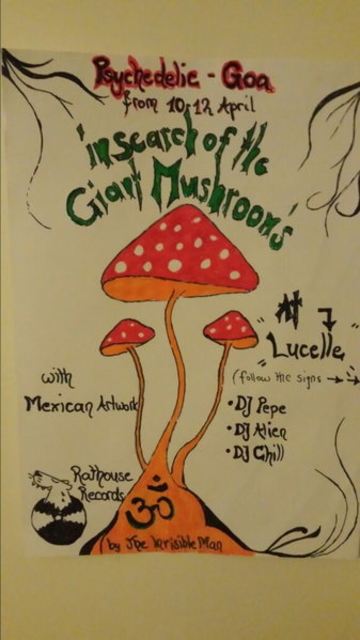 Psychedelic - Goa
from 10-12 April
in search of the
Giant Mushroom's
At
"Lucelle"
(follow the signs
with
Mexican Artwork
• DJ Pepe
• DJ Alien
• DJ Chill
Rathouse
Records
ॐ
(by The Invisible Man